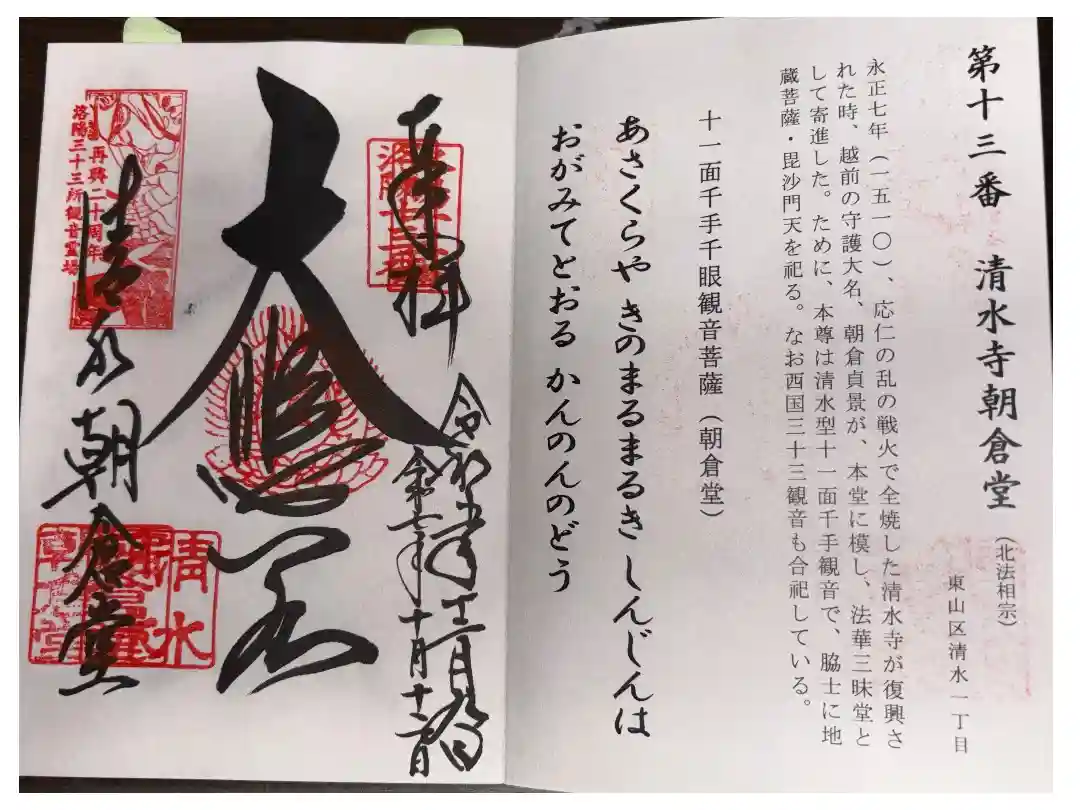 第十三番 清水寺朝倉堂（北法相宗）
東山区清水一丁目
永正七年（一五一〇）、応仁の乱の戦火で全焼した清水寺が復興さ
れた時、越前の守護大名、朝倉貞景が、本堂に模し、法華三昧堂と
して寄進した。ために、本尊は清水型十一面千手観音で、脇士に地
蔵菩薩・毘沙門天を祀る。なお西国三十三観音も合祀している。
十一面千手千眼観音菩薩（朝倉堂）
あさくらや きのまるまるき しんじんは
おがみてとおる かんのんのどう
奉拝
令和五年十二月九日
令和七年十月十二日
大悲閣
清水朝倉堂
再興二十周年
洛陽三十三所観音霊場
清水